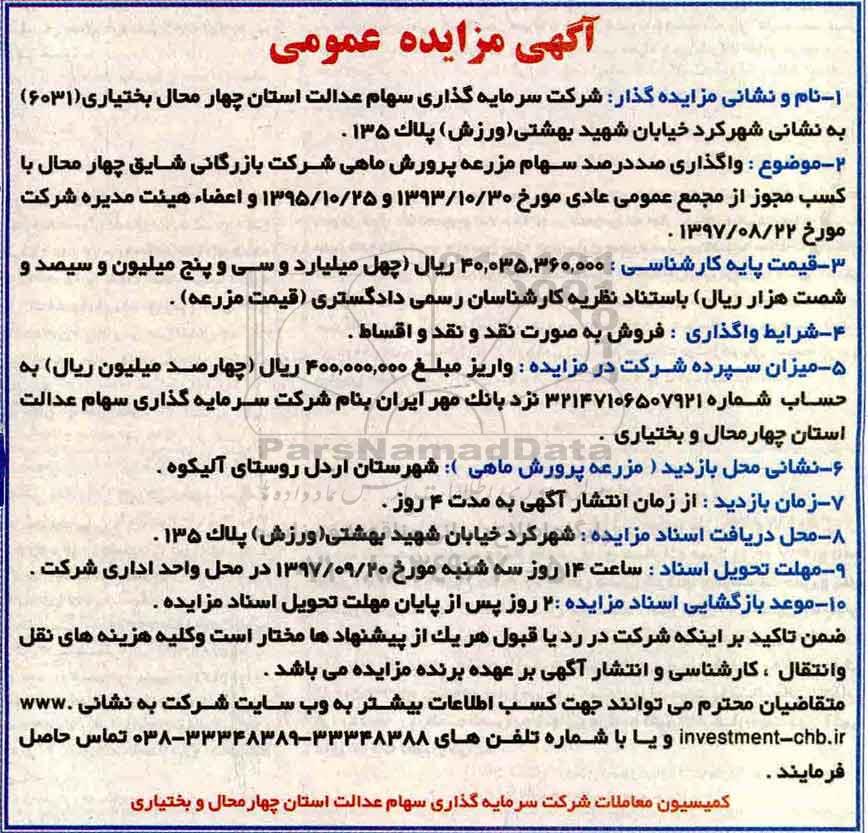 آگهی مزایده عمومی
۱-نام و نشانی مزایده گذار: شرکت سرمایه گذاری سهام عدالت استان چهار محال بختیاری(۶۰۳۱)
به نشانی شهرکرد خیابان شهید بهشتی(ورزش) پلاک ۱۳۵ .
۲-موضوع : واگذاری صددرصد سهام مزرعه پرورش ماهی شرکت بازرگانی شایق چهار محال با
کسب مجوز از مجمع عمومی عادی مورخ ۱۳۹۳/۱۰/۳۰ و ۱۳۹۵/۱۰/۲۵ و اعضاء هیئت مدیره شرکت
مورخ ۱۳۹۷/۰۸/۲۲ .
۳-قیمت پایه کارشناسی : ۴۰,۰۳۵,۳۶۰,۰۰۰ ریال (چهل میلیارد و سی و پنج میلیون و سیصد و
شصت هزار ریال) باستناد نظریه کارشناسان رسمی دادگستری (قیمت مزرعه) .
۴-شرایط واگذاری : فروش به صورت نقد و نقد و اقساط .
۵-میزان سپرده شرکت در مزایده : واریز مبلغ ۴۰۰,۰۰۰,۰۰۰ ریال (چهارصد میلیون ریال) به
حساب شماره ۳۲۱۴۷۱۰۶۵۰۷۹۲۱ نزد بانک مهر ایران بنام شرکت سرمایه گذاری سهام عدالت
استان چهارمحال و بختیاری .
ParsNamadData
۶-نشانی محل بازدید ( مزرعه پرورش ماهی ): شهرستان اردل روستای آلیکوه .
۷-زمان بازدید : از زمان انتشار آگهی به مدت ۴ روز .
۸-محل دریافت اسناد مزایده : شهرکرد خیابان شهید بهشتی(ورزش) پلاک ۱۳۵ .
۹-مهلت تحویل اسناد : ساعت ۱۴ روز سه شنبه مورخ ۱۳۹۷/۰۹/۲۰ در محل واحد اداری شرکت .
۱۰-موعد بازگشایی اسناد مزایده :۲ روز پس از پایان مهلت تحویل اسناد مزایده .
ضمن تاکید بر اینکه شرکت در رد یا قبول هر یک از پیشنهاد ها مختار است وکلیه هزینه های نقل
وانتقال ، کارشناسی و انتشار آگهی بر عهده برنده مزایده می باشد .
متقاضیان محترم می توانند جهت کسب اطلاعات بیشتر به وب سایت شرکت به نشانی www.
investment-chb.ir و یا با شماره تلفن های ۳۳۳۴۸۳۸۸-۳۳۳۴۸۳۸۹-۰۳۸ تماس حاصل
فرمایند .
کمیسیون معاملات شرکت سرمایه گذاری سهام عدالت استان چهارمحال و بختیاری